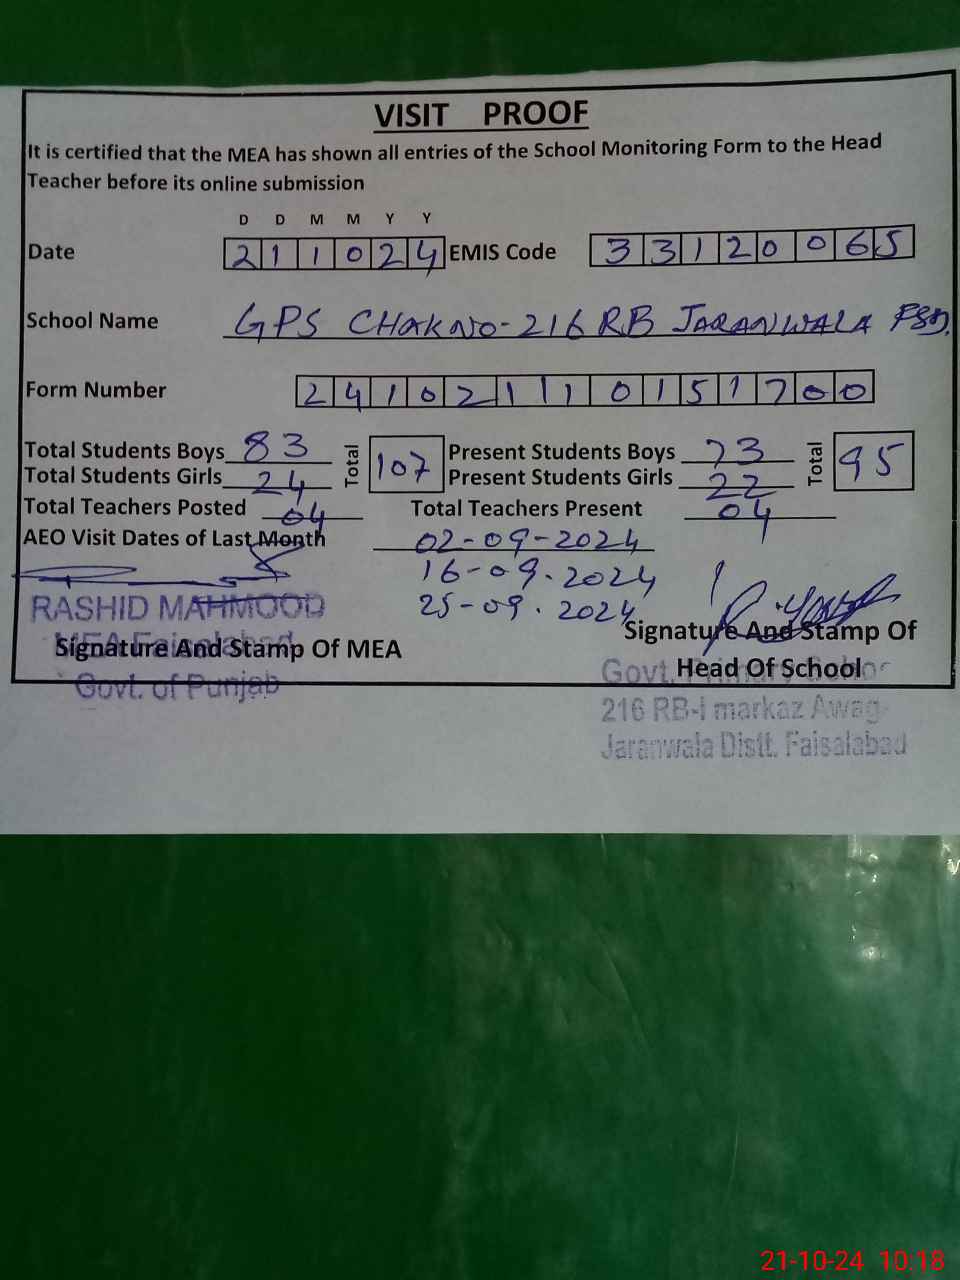 VISIT PROOF
It is certified that the MEA has shown all entries of the School Monitoring Form to the Head
Teacher before its online submission
D D M M Y Y
Date 211024 EMIS Code 33120065
School Name GPS CHAK NO-216 RB JARANWALA FSD.
Form Number 241021110151700
Total Students Boys 83 Total 107 Present Students Boys 73 Total 95
Total Students Girls 24 Present Students Girls 22
Total Teachers Posted 04 Total Teachers Present 04
AEO Visit Dates of Last Month 02-09-2024
16-09-2024
25-09-2024
RASHID MAHMOOD
MEA Faisalabad
Signature And Stamp Of MEA
Govt. of Punjab
Signature And Stamp Of
Head Of School
Govt. Primary School
216 RB-I markaz Awag
Jaranwala Distt. Faisalabad
21-10-24 10:18